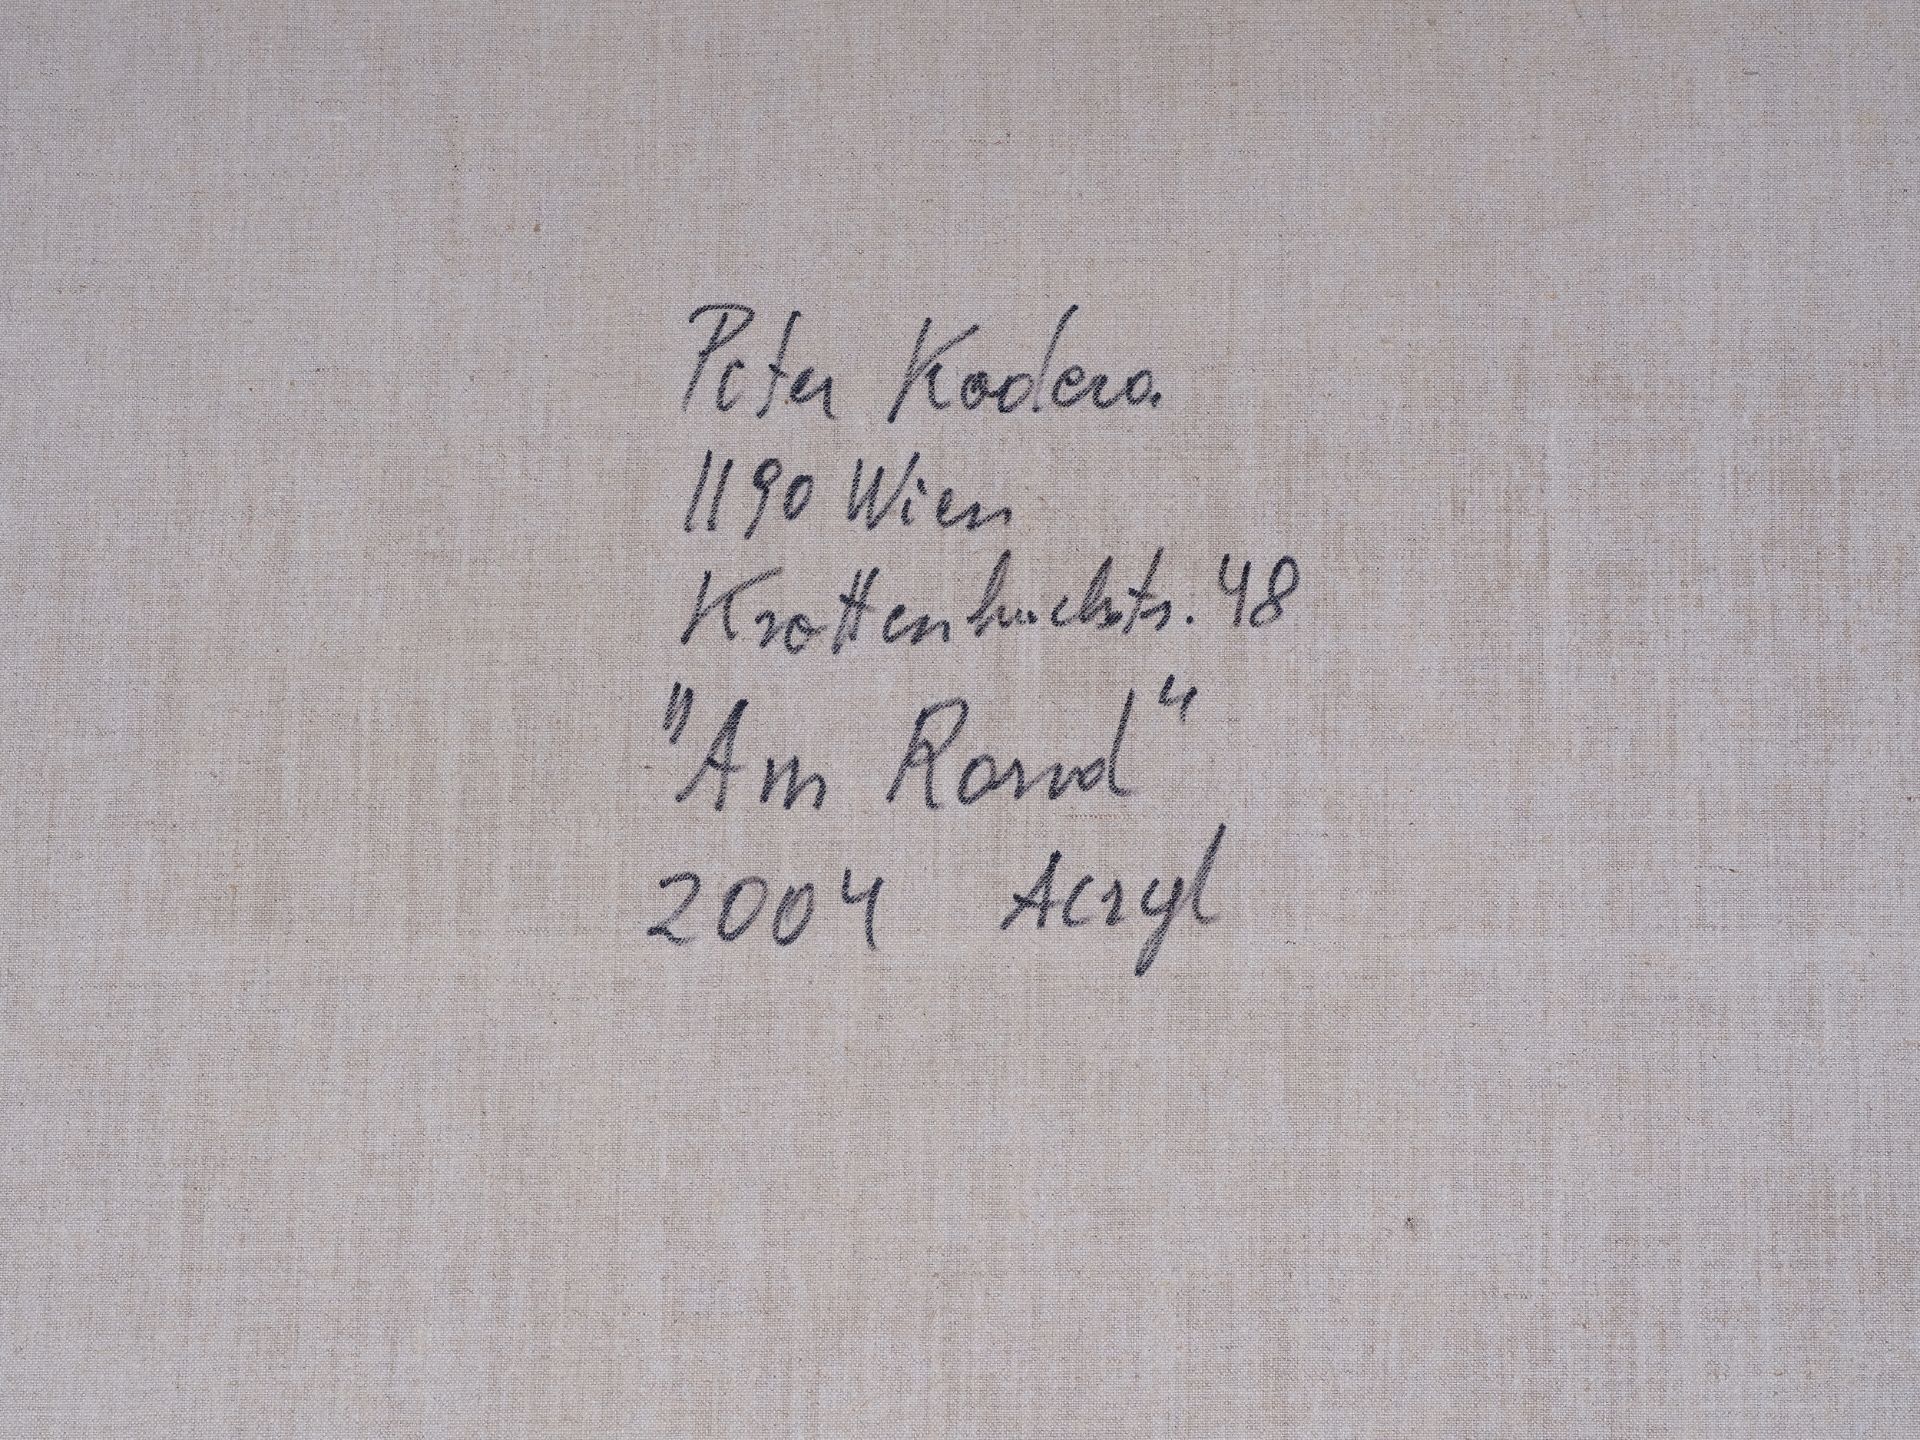 Peter Kodera
1190 Wien
Krottenbachstr. 48
"Am Rand"
2004 Acryl